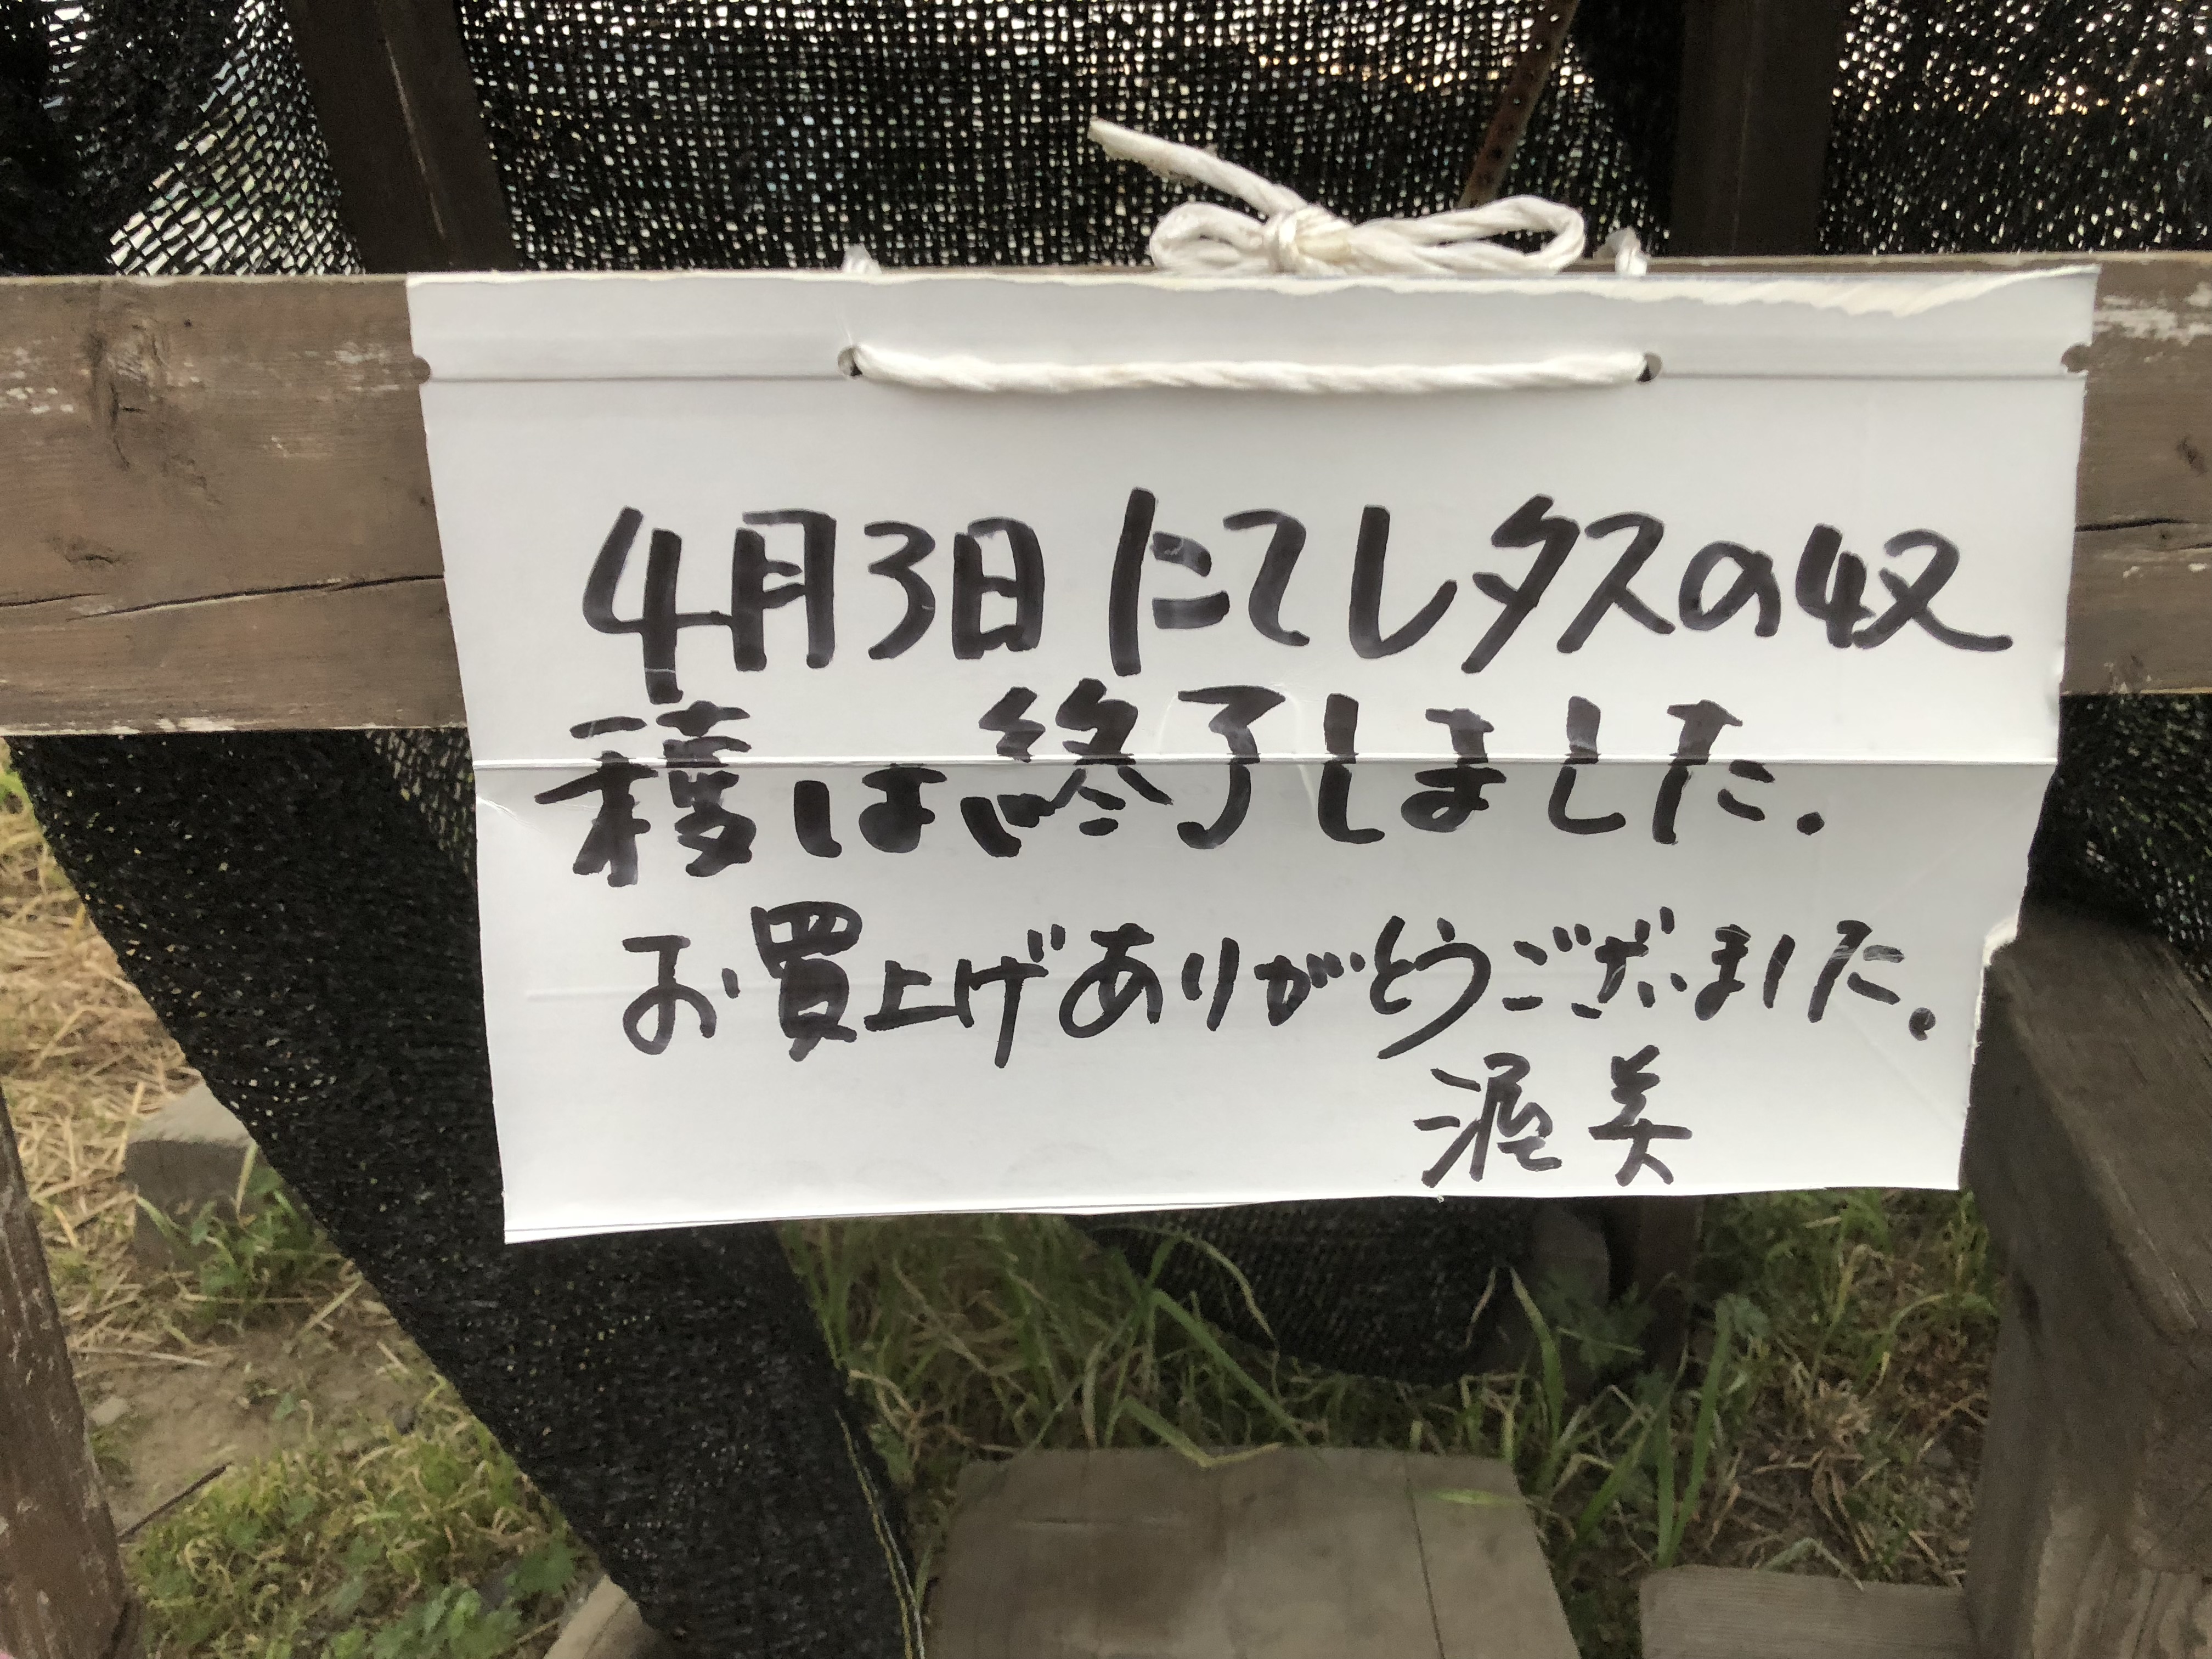 4月3日にてレタスの収
穫は終了しました.
お買上げありがとうございました.
渥美